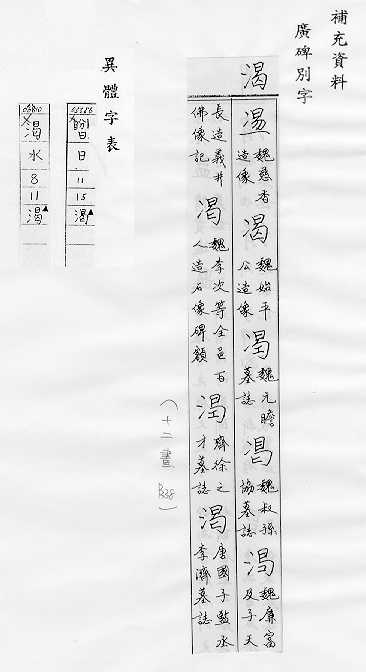 補充資料
廣碑別字
渴
魏慈香造像
渴 魏始平公造像
渴 魏元瞻墓誌
魏叔孫協墓誌
渴 魏廉富及子天
長造義井佛像記
渴 魏李次等全邑百人造石像碑額
渴 齊徐之才墓誌
渴 唐國子監丞李濟墓誌
(十二畫 B38)
異體字表
日
11
15
渴▲
渴
水
8
11
渴▲